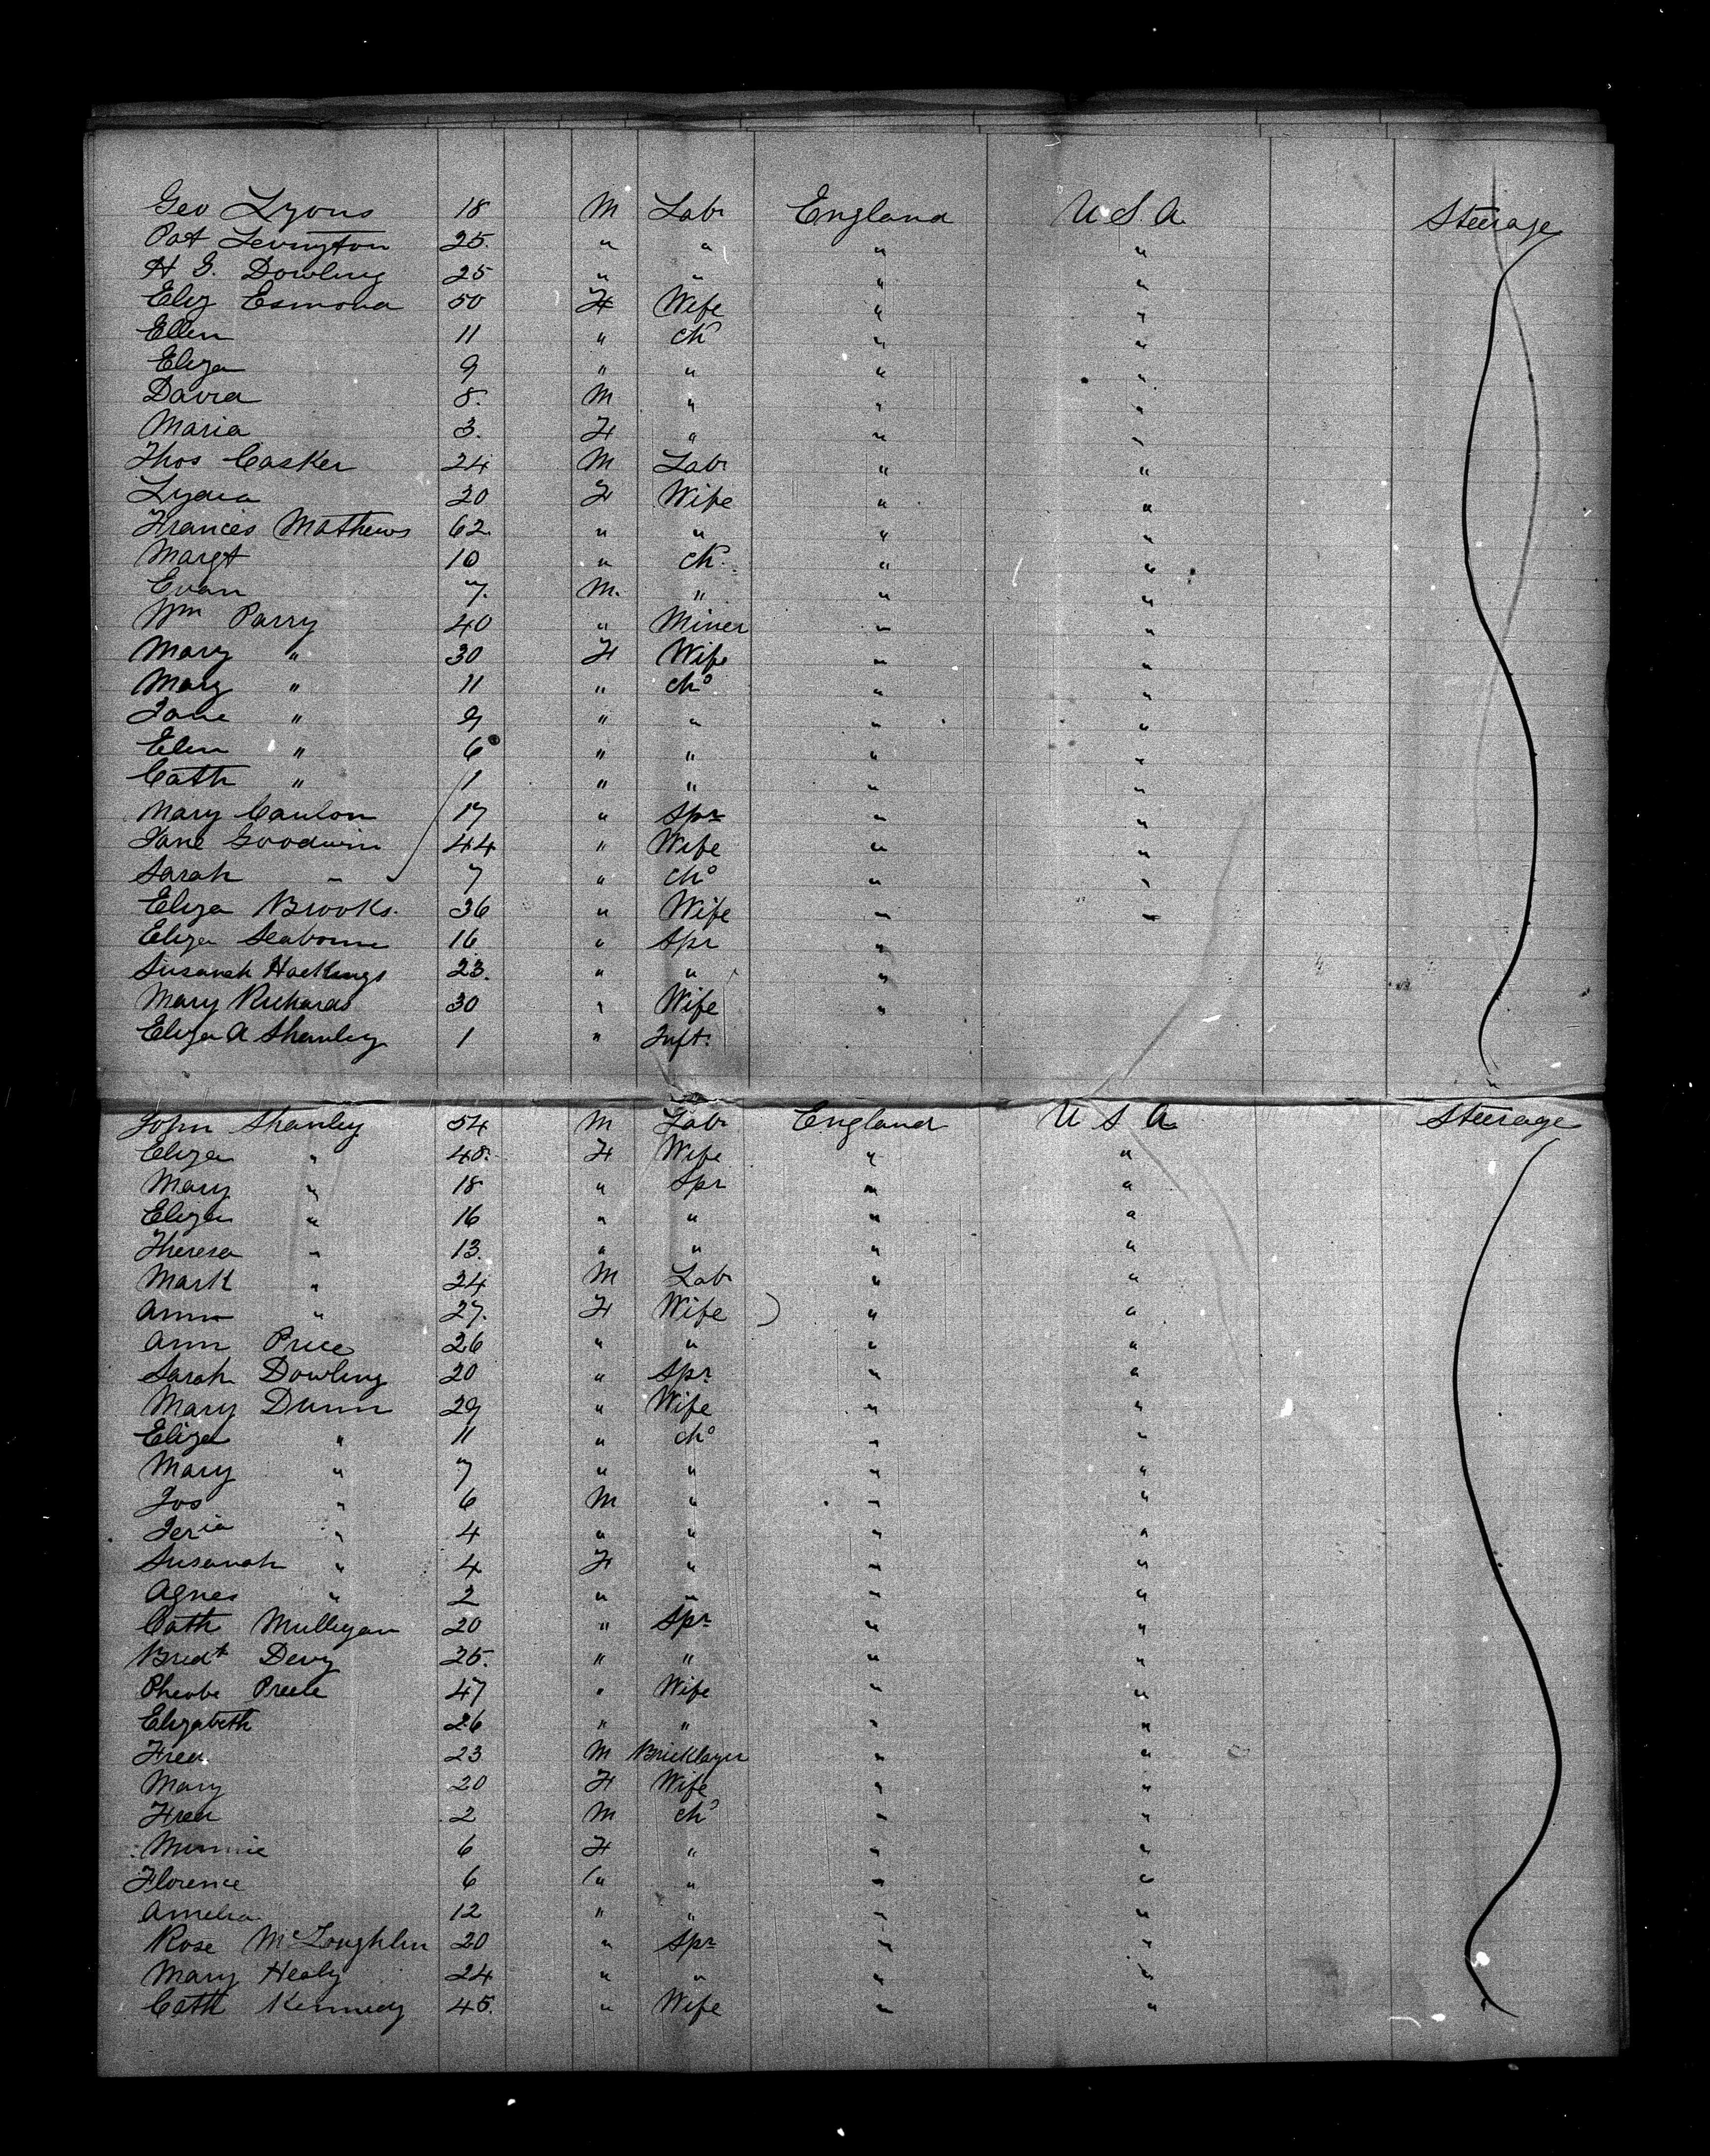 Geo Lyons 18 M Lab England U.S.A. Steerage
Pat Levington 25. " " " "
H G. Dowling 25 " " " "
Eliz Esmond 50 F Wife " "
Ellen 11 " Chd " "
Eliza 9 " " " "
David 8. M " " "
Maria 3. F " " "
Thos Casker 24 M Lab " "
Lydia 20 F Wife " "
Frances Mathews 62. " " " "
Margt 10 " Chd " "
Evan 7. M. " " "
Wm Parry 40 " Miner " "
Mary " 30 F Wife " "
Mary " 11 " Chd " "
Jane " 9 " " " "
Elen " 6 " " " "
Cath " 1 " " " "
Mary Caulon 17 " Spr " "
Jane Goodwin 44 " Wife " "
Sarah " 7 " Chd " "
Eliza Brooks. 36 " Wife " "
Eliza Seaborne 16 " Spr "
Susanah Hackings 23. " " "
Mary Richards 30 " Wife "
Eliza A Shanley 1 " Inft.
John Shanley 54 M Lab England U S A Steerage
Eliza " 48. F Wife " "
Mary " 18 " Spr " "
Eliza " 16 " " " "
Theresa " 13. " " " "
Mark " 24 M Lab " "
Ann " 27. F Wife " "
Ann Price 26 " " " "
Sarah Dowling 20 " Spr " "
Mary Dunn 29 " Wife " "
Eliza " 11 " Chd " "
Mary " 7 " " " "
Jos " 6 M " " "
" 4 " " " "
Susanah " 4 F " " "
Agnes " 2 " " " "
Cath Mulligan 20 " Spr " "
Bredt Devy 25. " " " "
Pheobe Preele 47 " Wife " "
Elizabeth 26 " " " "
Fred. 23 M Bricklayer " "
Mary 20 F Wife " "
Fred 2 M Chd " "
Minnie 6 F " " "
Florence 6 " " " "
Amelia 12 " " " "
Rose McLoughlin 20 " Spr " "
Mary Healy 24 " " " "
Cath Kennedy 45. " Wife " "